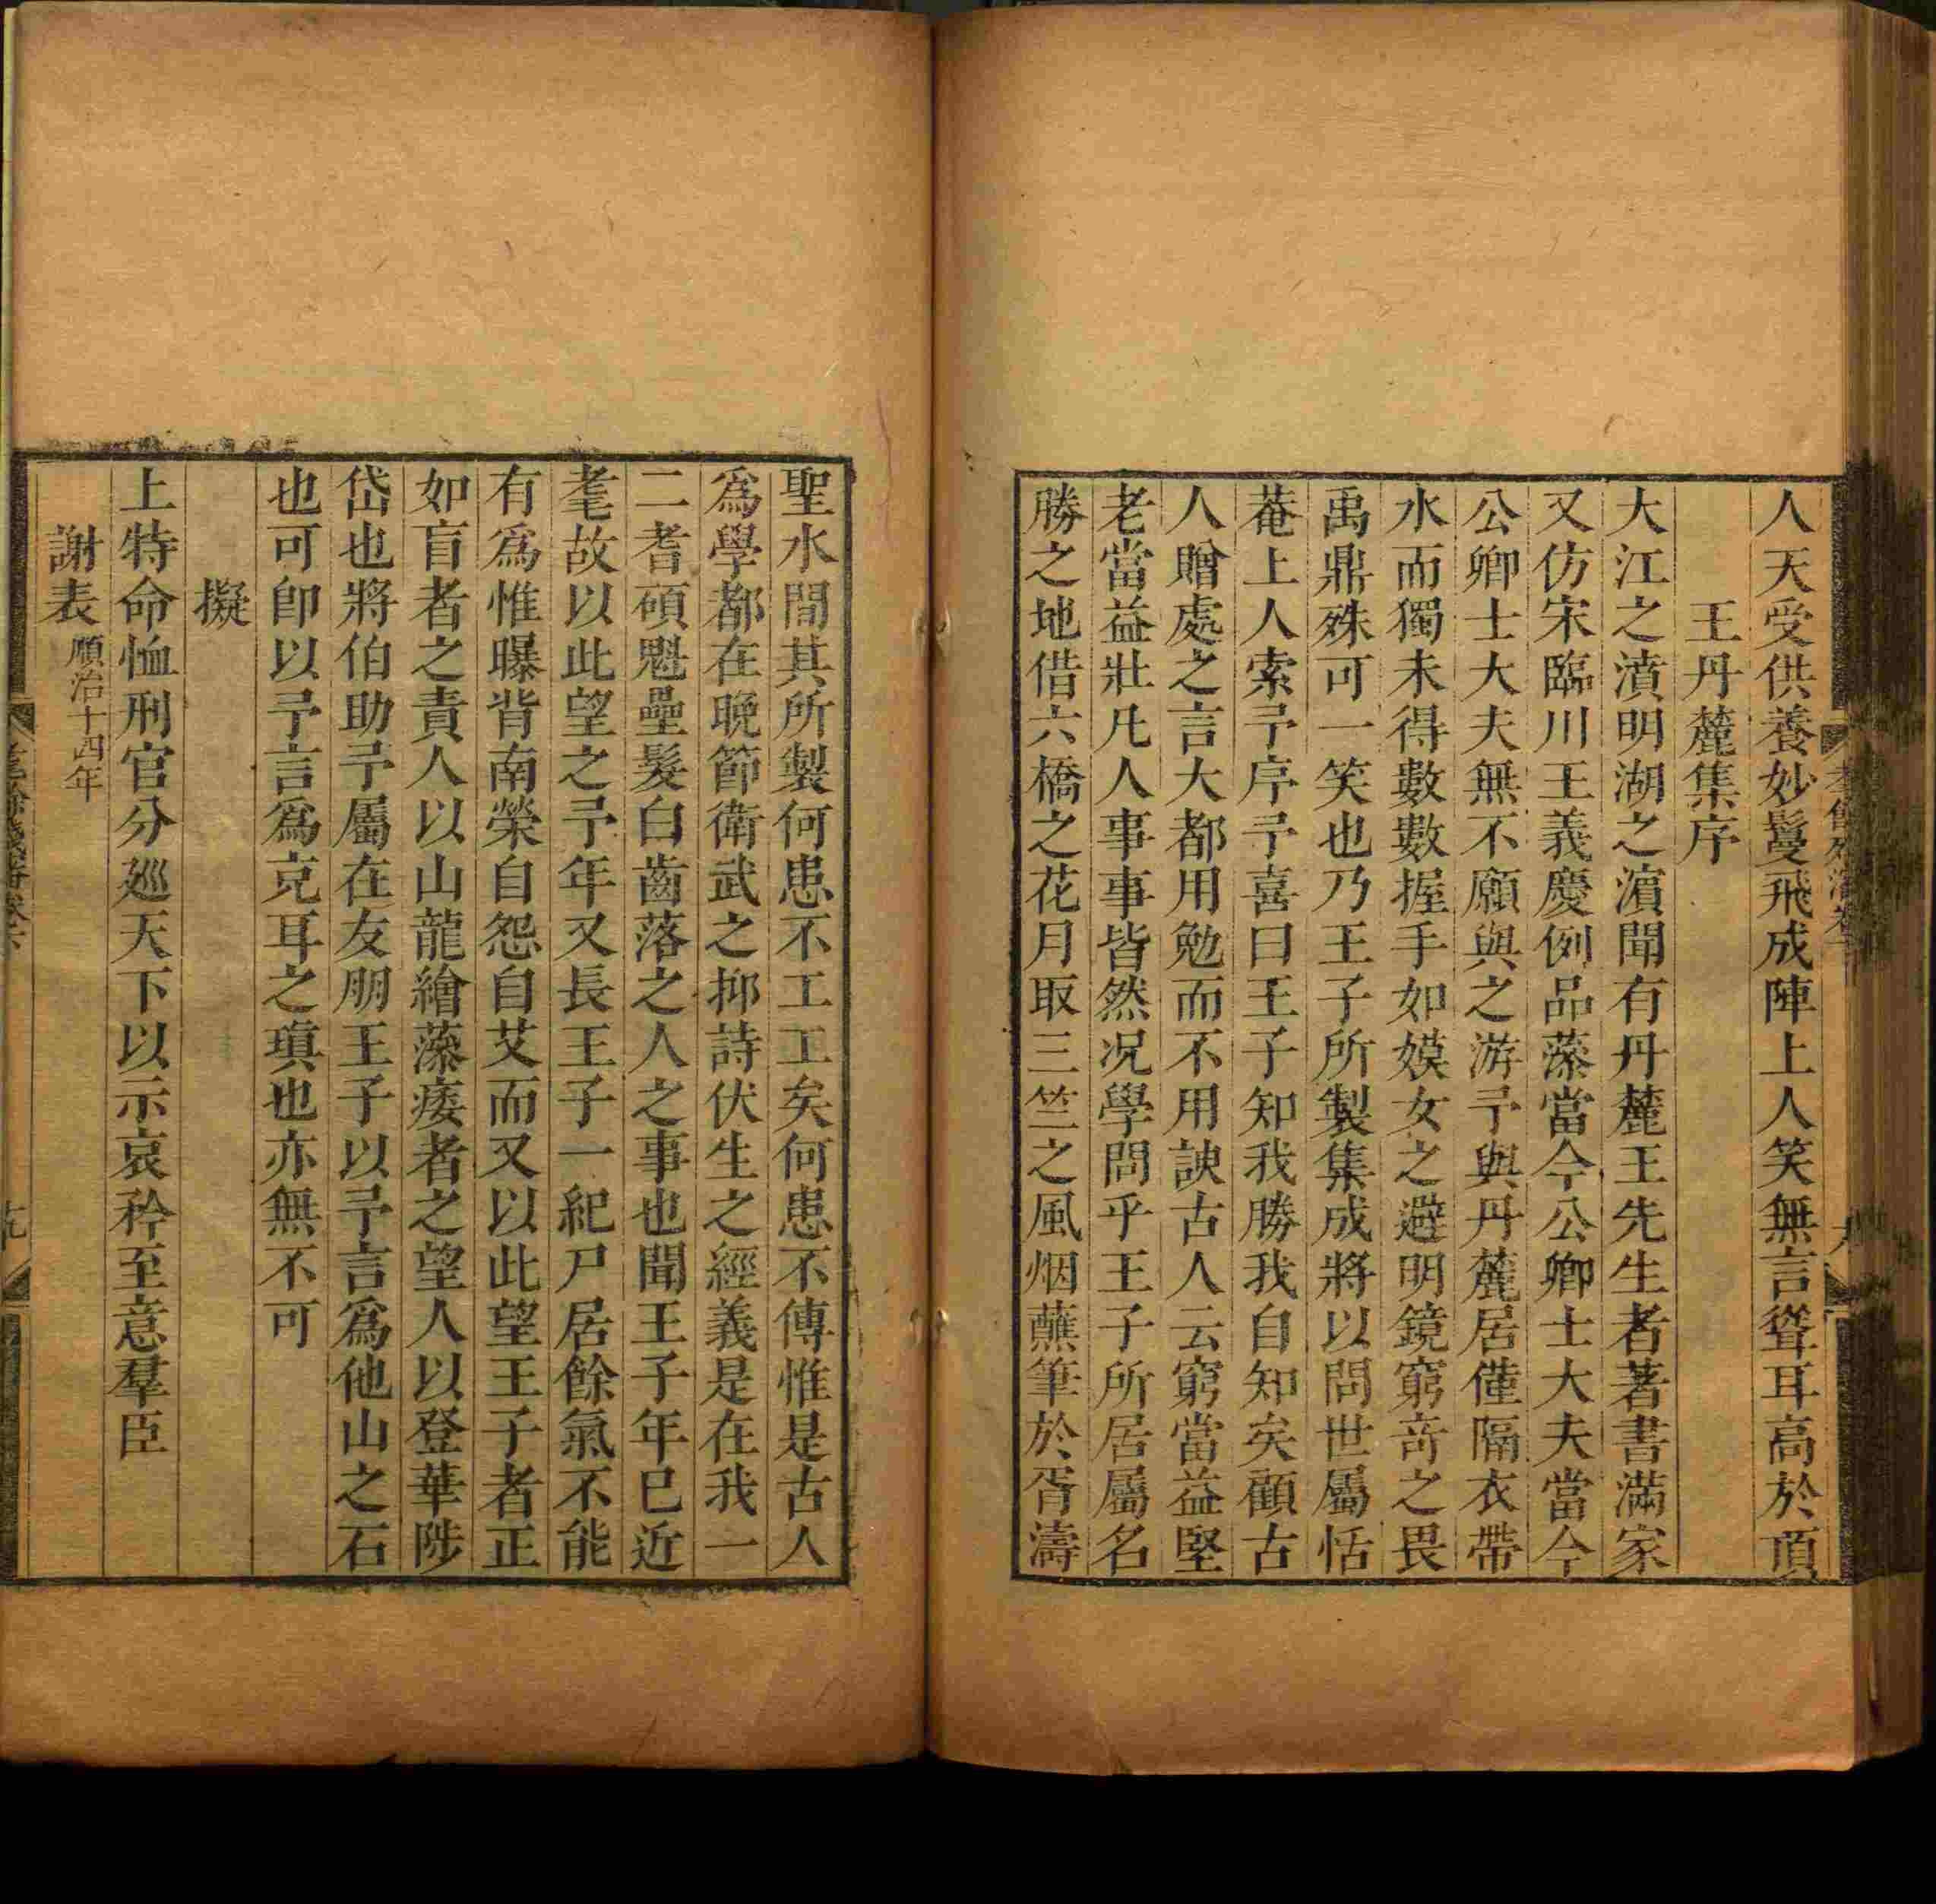 人天受供養妙鬘飛成陣上人笑無言聳耳高於頂
王丹麓集序
大江之濆明湖之濵聞有丹麓王先生者著書滿家
又仿宋臨川王義慶例品藻當今公卿士大夫當今
公卿士大夫無不願與之游予與丹麓居僅隔衣帶
水而獨未得數數握手如嫫女之避明鏡窮竒之畏
禹鼎殊可一笑也乃王子所製集成將以問世屬恬
菴上人索予序予喜曰王子知我勝我自知矣顧古
人贈處之言大都用勉而不用諛古人云窮當益堅
老當益壯凡人事事皆然况學問乎王子所居屬名
勝之地借六橋之花月取三竺之風烟蘸筆於胥濤
聖水間其所製何患不工工矣何患不傳惟是古人
爲學都在晚節衛武之抑詩伏生之經義是在我一
二耆碩魁壘髮白齒落之人之事也聞王子年已近
耄故以此望之予年又長王子一紀尸居餘氣不能
有爲惟曝背南榮自怨自艾而又以此望王子者正
如盲者之責人以山龍繪藻痿者之望人以登華陟
岱也將伯助予屬在友朋王子以予言爲他山之石
也可卽以予言爲克耳之瑱也亦無不可
擬
上特命恤刑官分廵天下以示哀矜至意羣臣
謝表順治十四年